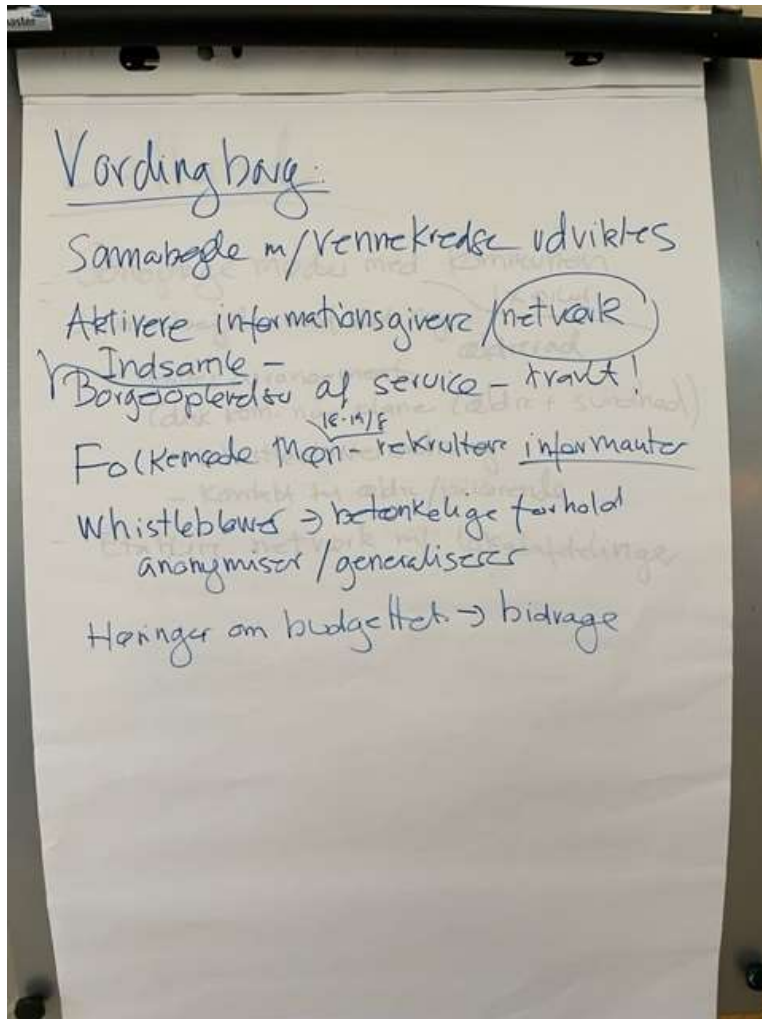 Vordingborg:
Samarbejde m/Vennekredse udvikles
Aktivere informationsgivere / netværk
Indsamle -
Borgeroplevelser af service - travlt!
18-19/8
Folkemøde Møn - rekruttere informanter
Whistleblower → betænkelige forhold
anonymiser / generaliserer
Høringer om budgettet → bidrage